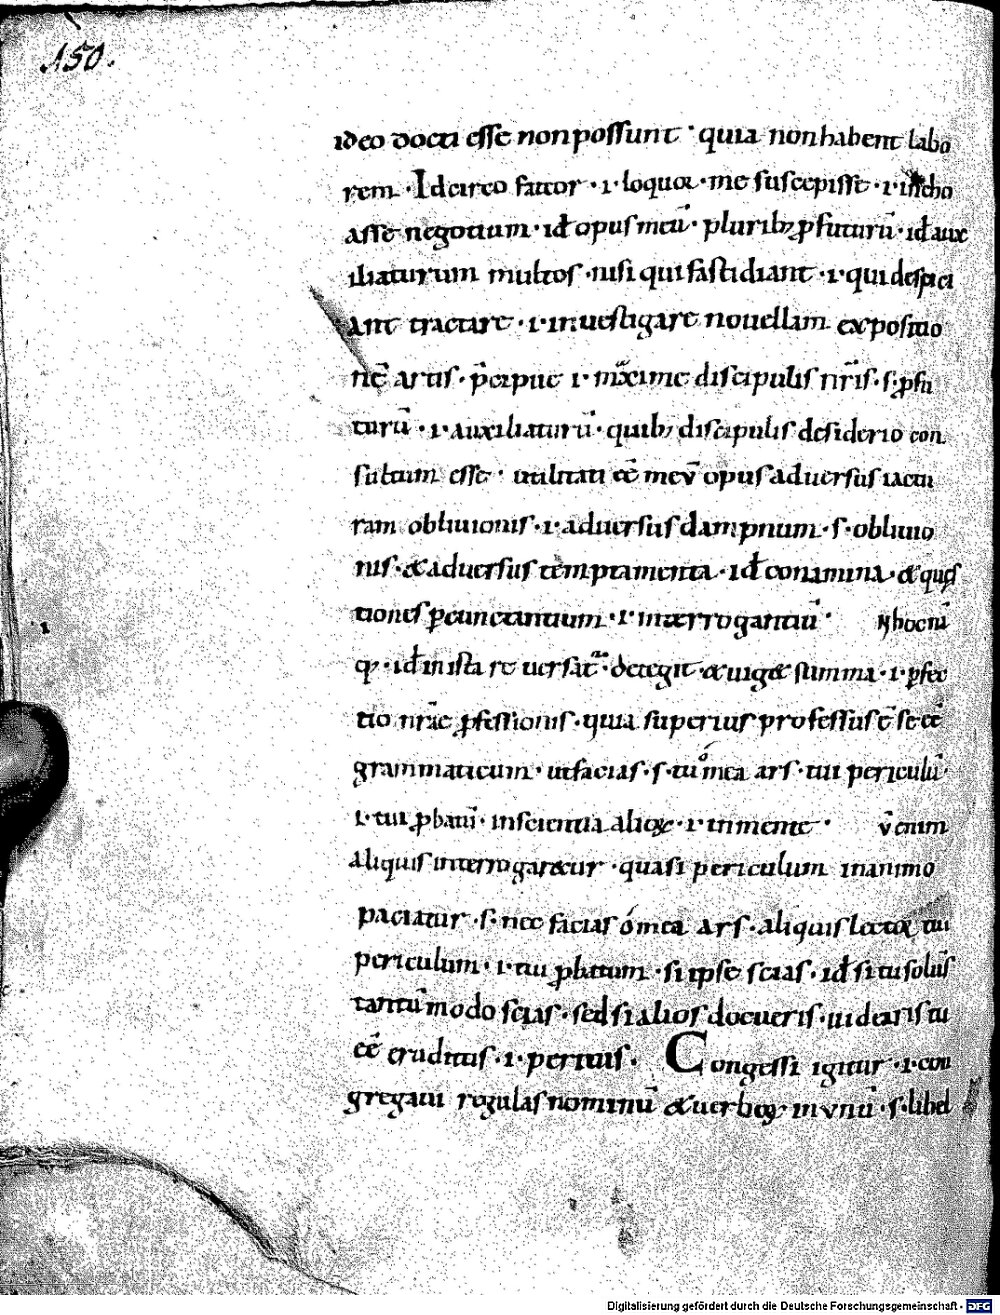 150.
ideo docti esse non possunt · quia non habent labo
rem · Idcirco fateor · i · loquor · me suscepisse · i · incho
asse negotium · id÷ opus meū · pluribꝫ ꝓfuturū · id÷ auxi
iliaturum multos · nisi qui fastidiant · i · qui despici
ant tractare · i · inuestigare nouellam expositio
nē artis · p̄cipue · i · maxime discipulis nr̄is · s · ꝓfu
turū · i · auxiliaturū · quibꝫ discipulis desiderio con
sultum esse · utilitati eē meū opus aduersus iactu
ram obliuionis · i · aduersus dampnum · s · obliuio
nis · & aduersus temptamenta · id÷ conamina · & quęs
tiones ꝑcunctantium · i · interrogantiū ·
id÷ in ista re uersat᷑ · detegit · & uiget summa · i · ꝑfec
tio nr̄ae ꝓfessionis · quia superius professus ē se eē
grammaticum · ut facias · s · tu ó mea ars · tui periculū ·
i · tui ꝓbatū · inscientia aliorꝫ · i · in mente · v̄ enim
aliquis interrogaretur · quasi periculum in animo
paciatur · s · nec facias ó mea ars · aliquis lector tui
periculum · i · tui ꝓbatum · si ipse scias · id÷ si tu solus
tantūmodo scias · sed si alios docueris · uidearis tu
eē eruditus · i · peritus · Congessi igitur · i · con
gregaui regulas nominū & uerborꝫ in unū · s · libel
Digitalisierung gefördert durch die Deutsche Forschungsgemeinschaft · DFG